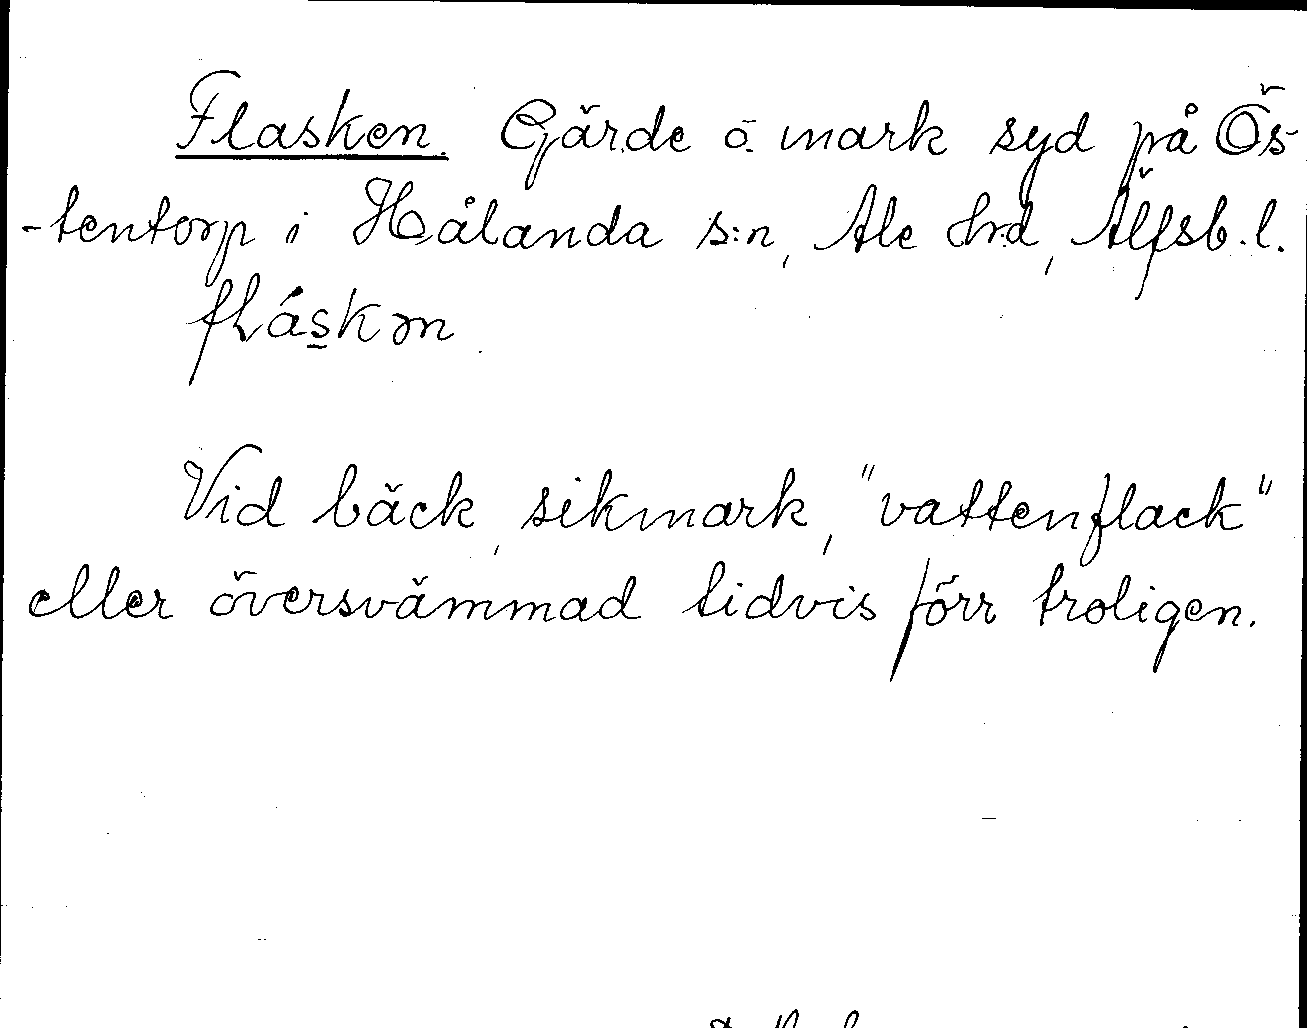 Flasken. Gärde o. mark syd på Ös-
-tentorp i Hålanda s:n, Ale hrd, Älfsb. l.
fláskən
Vid bäck, sikmark, "vattenflack"
eller översvämmad tidvis förr troligen.